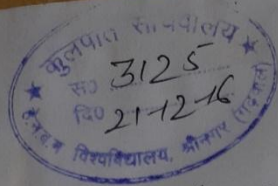 कुलपति सचिवालय
सं० 3125
दि० 21-12-16
हे.न.ब.ग. विश्वविद्यालय, श्रीनगर (गढ़वाल)